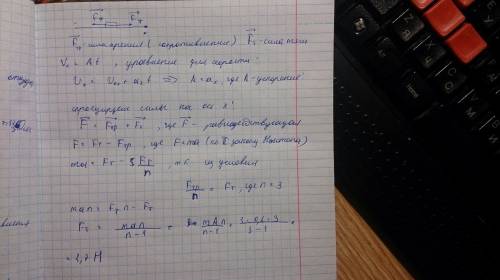 Fтр Fт
Fтр - сила трения (сопротивления) Fт - сила тяги
Vx = At, уравнение для скорости:
Vx = V0x + axt => A = ax, где A - ускорение
спроецируем силы на ось x:
F = Fтр + Fт, где F - равнодействующая
F = Fт - Fтр, где F = ma (по II закону Ньютона)
ma = Fт - Fт/n, т.к. из условия
Fтр/n = Fт, где n = 3
man = Fтn - Fт
Fт = man/n-1 = mAn/n-1 =
= 2,7 Н